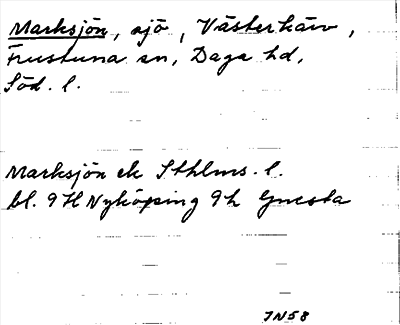 Marksjön, sjö, Västerkärv,
Frustuna sn, Daga hd,
Söd. l.
Marksjön ek Sthlms. l.
bl. 9H Nyköping 9h Gnesta
JN58